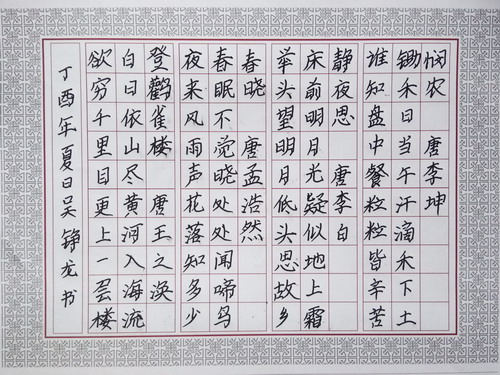 悯农 唐李坤
锄禾日当午汗滴禾下土
谁知盘中餐粒粒皆辛苦
静夜思 唐李白
床前明月光疑似地上霜
举头望明月低头思故乡
春晓 唐孟浩然
春眠不觉晓处处闻啼鸟
夜来风雨声花落知多少
登鹳雀楼 唐王之涣
白日依山尽黄河入海流
欲穷千里目更上一楼
丁酉年夏日吴铮龙书